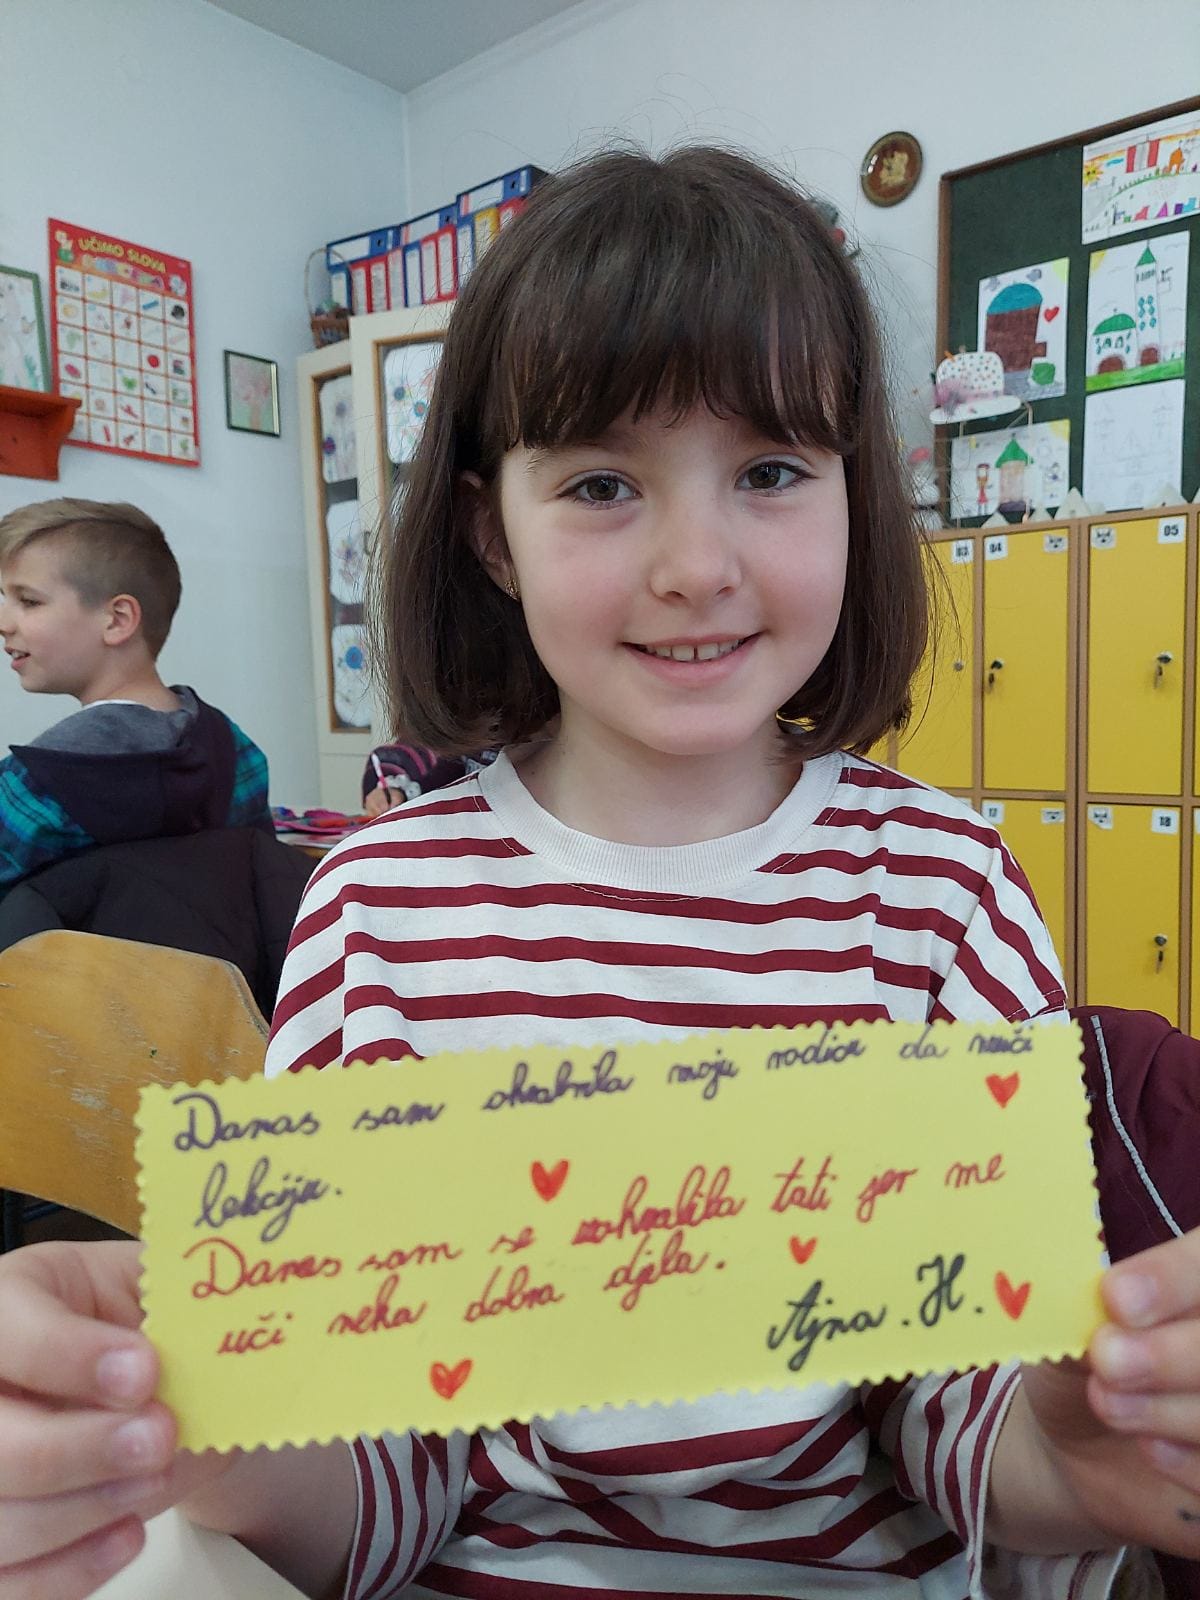 UČIMO SLOVA
03
04
05
17
18
Danas sam ohrabrila moju rodicu da nauči
lekciju.
Danas sam se zahvalila tati jer me
uči neka dobra djela.
Ajna. H.